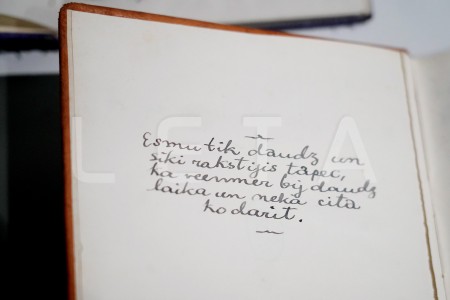 LETA
Esmu tik daudz un
sīki rakstījis tāpēc,
ka vienmēr bij daudz
laika un nekā cita
ko darīt.